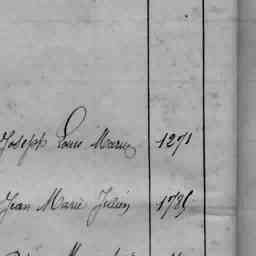 Joseph Louis Marie 1271
Jean Marie Julien 1785